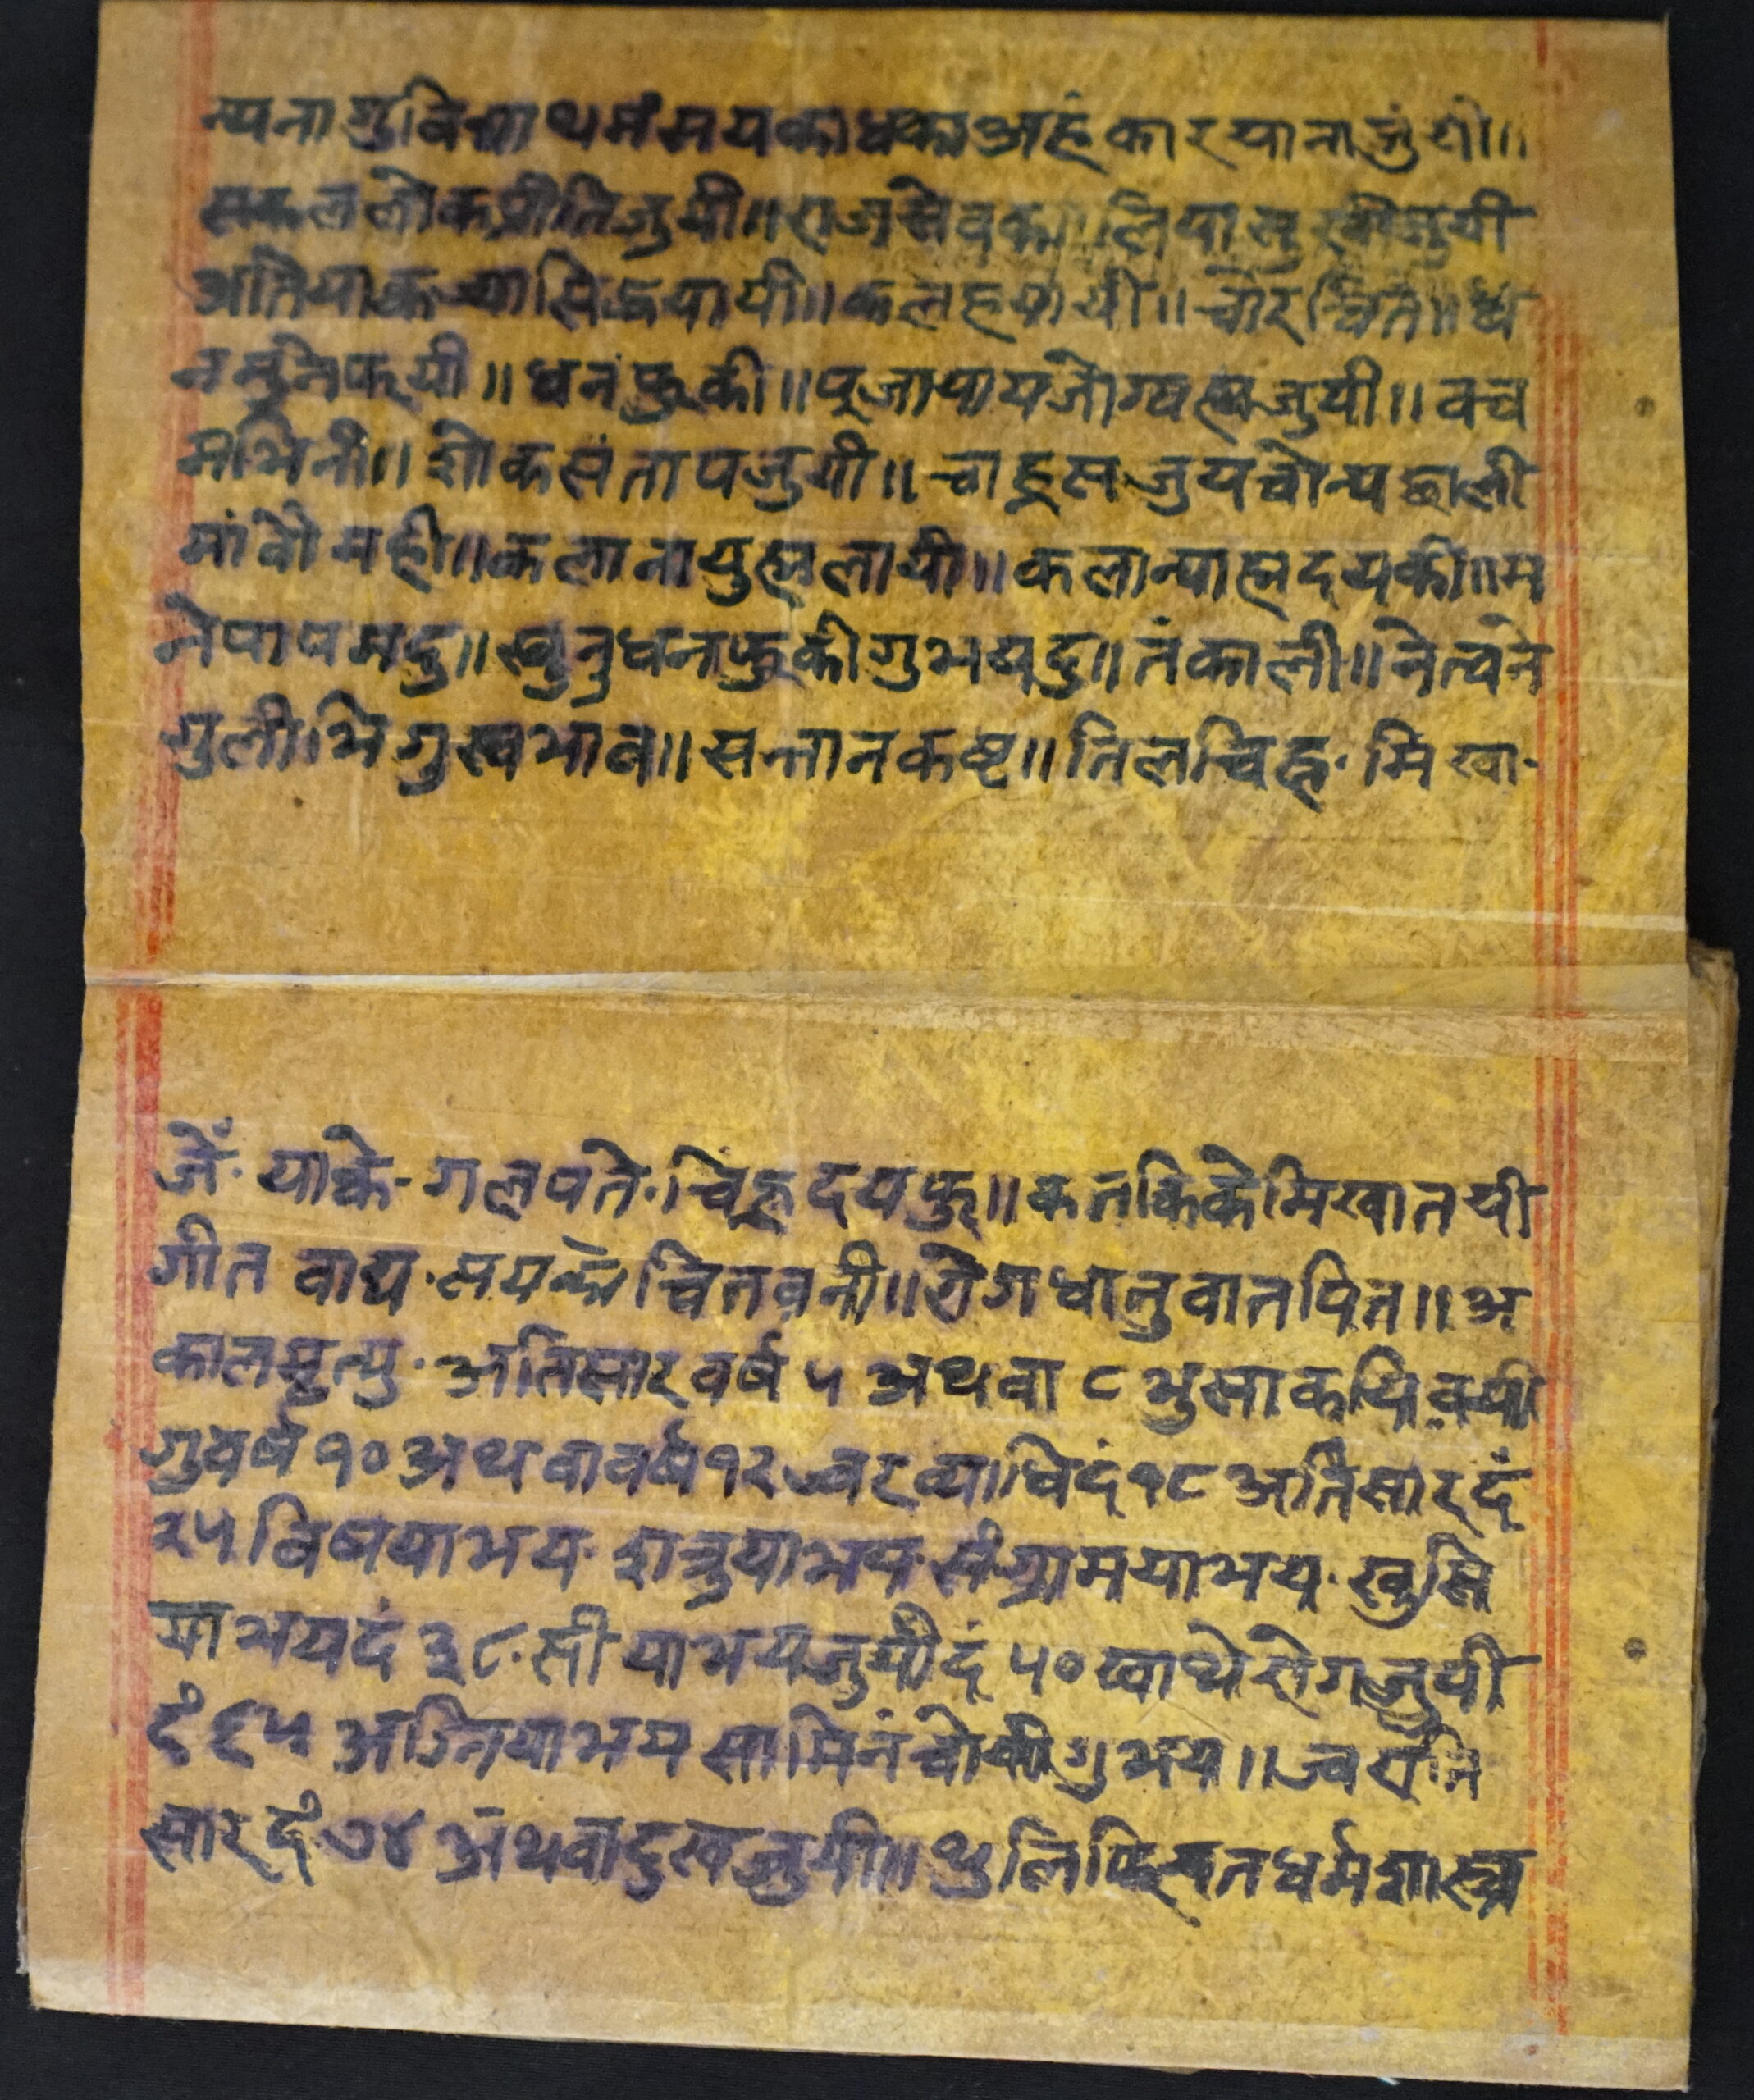 न्यना गुविद्या थमं सयका धका अहंकार याना जुयी॥
सकल लोक प्रीति जुयी॥ राज सेवका॥ लिपा सुखी जुयी
अतियाक ज्यासिक यायी॥ कलह यायी॥ चोर चित॥ ध
न मुनेफयी॥ धन फुकी॥ पूजा याय जोग्य ह्म जुयी॥ वच
मभिनी॥ शोक संताप जुयी॥ चाहुल जुय चोन्य छाली
मांवौ मही॥ कला नायुह्म लायी॥ कलान्याह्म दयकी॥ म
ने पाप मदु॥ खुनु धन फुकीगु भय दु॥ तंकाली॥ नेत्वने
गुली भिगु स्वभाव॥ सन्तान कष्ट॥ तिल चिह्न. मिखा.
जें. याके. गलपते. चिह्न दयफु॥ कतकिके मिखा तयी
गीत वाद्य. सयके चित वनी॥ रोग धातु वात पित॥ अ
कालमृत्यु. अतिसार वर्ष ५ अथवा ८ भुसाकयि वयी
गु वर्ष १० अथवा वर्ष १२ ज्वर व्याधि दं १८ अतिसार दं
२५ विषया भय. शत्रुया भय. संग्रामया भय. खुसि
या भय दं ३८. सीया भय जुयी दं ५० खाथे रोग जुयी
दं ६५ अग्निया भय सामिनं चोयीगु भय॥ ज्वराति
सार दं ७४ अथवा दुख जुयी॥ थुलि फिरचन धर्मशास्त्र